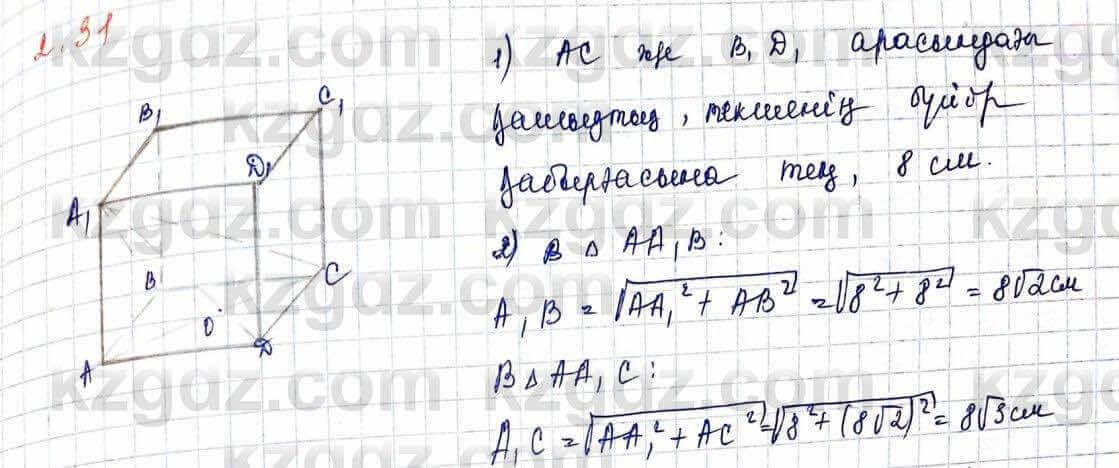 2.31
1) AC және B₁D₁ арасындағы
қашықтық, текшенің бүйір
қабырғасына тең, 8 см.
2) В △ AA₁B:
A₁B = √(AA₁² + AB²) = √(8² + 8²) = 8√2 см
В △ AA₁C:
A₁C = √(AA₁² + AC²) = √(8² + (8√2)²) = 8√3 см
B₁
C₁
D₁
A₁
B
C
O
A
D
kzgdz.com